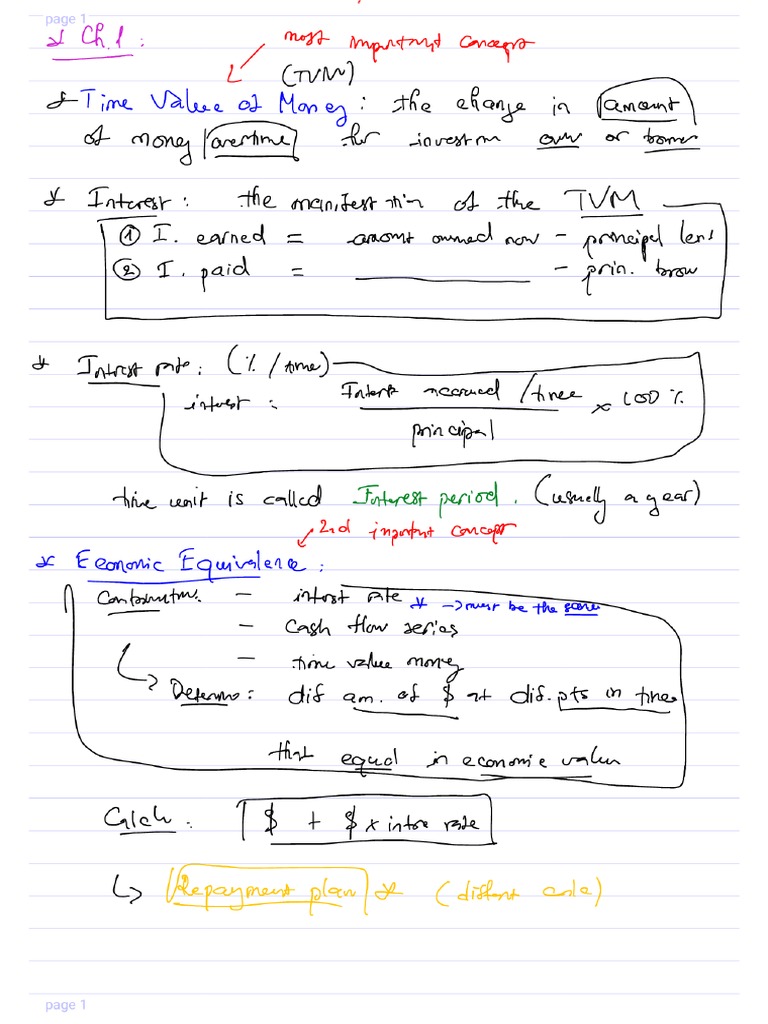 page 1
* Ch.1 :
most important concept
(TVM)
* Time Value of Money : the change in amount
of money overtime for investm owe or borrow
* Interest : the manifestation of the TVM
① I. earned = amount owned now - principal lens
② I. paid = ________ - prin. brow
* Interest rate : (% / time)
interest : Interest accrued / time × 100 %
principal
time unit is called Interest period . (usually a year)
2nd important concept
* Economic Equivalence :
- intrest rate * → must be the same
- Cash flow series
- time value money
Determine : dif am. of $ at dif. pts in times
that equal in economic value
Calcul : $ + $ × intre rate
↳ Repayment plan *
page 1